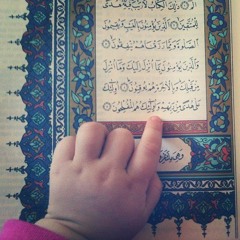 الٓمٓ ذَٰلِكَ ٱلْكِتَٰبُ لَا رَيْبَ فِيهِ هُدًى
لِّلْمُتَّقِينَ ٱلَّذِينَ يُؤْمِنُونَ بِٱلْغَيْبِ وَيُقِيمُونَ
ٱلصَّلَوٰةَ وَمِمَّا رَزَقْنَٰهُمْ يُنفِقُونَ
وَٱلَّذِينَ يُؤْمِنُونَ بِمَآ أُنزِلَ إِلَيْكَ وَمَآ أُنزِلَ
مِن قَبْلِكَ وَبِٱلْءَاخِرَةِ هُمْ يُوقِنُونَ أُو۟لَٰٓئِكَ
عَلَىٰ هُدًى مِّن رَّبِّهِمْ وَأُو۟لَٰٓئِكَ هُمُ ٱلْمُفْلِحُونَ